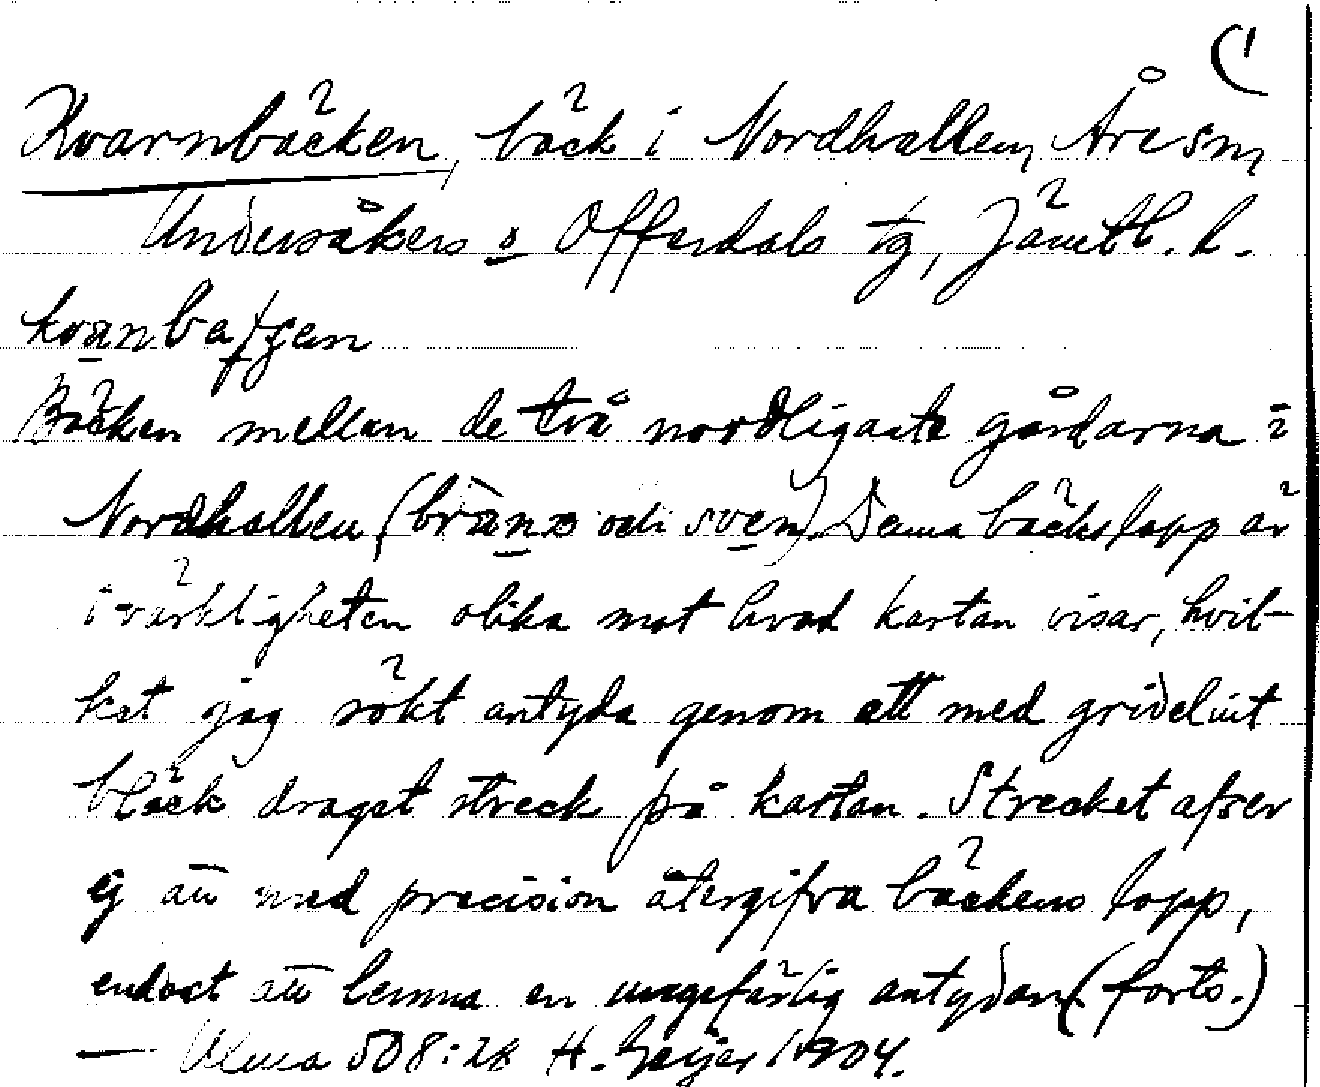 Kvarnbäcken, bäck i Nordhallen, Åre sn,
Undersåkers o Offerdals tg, Jämtl. l.
Bäcken mellan de två nordligaste gårdarna i
Nordhallen (bränə och sven). Denna bäcks lopp är
i värkligheten olika mot hvad kartan visar, hvil-
ket jag sökt antyda genom ett med gridelint
bläck draget streck på kartan. Strecket afser
ej att med precision återgifva bäckens lopp,
endast att lemna en ungefärlig antydan (forts.)
— Ulma 508:28 H. Geijer 1904.